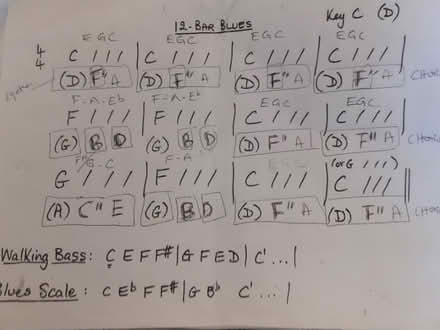 12-BAR BLUES Key C (D)
EGC EGC EGC EGC
4/4 C / / / | C / / / | C / / / | C / / / |
(D) F" A (D) F" A (D) F" A (D) F" A
F-A-Eb F-A-Eb EGC EGC
F / / / | F / / / | C / / / | C / / / |
(G) B D (G) B D (D) F" A (D) F" A
G-C F-A EGC (or G / / /)
G / / / | F / / / | C / / / | C / / / ||
(A) C" E (G) B D (D) F" A (D) F" A
Walking Bass: C E F F# | G F E D | C' ... |
Blues Scale: C Eb F F# | G Bb C' ... |